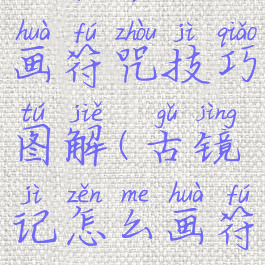 huà fú zhòu jì qiǎo
画符咒技巧
tú jiě gǔ jìng
图解(古镜
jì zěn me huà fú
记怎么画符